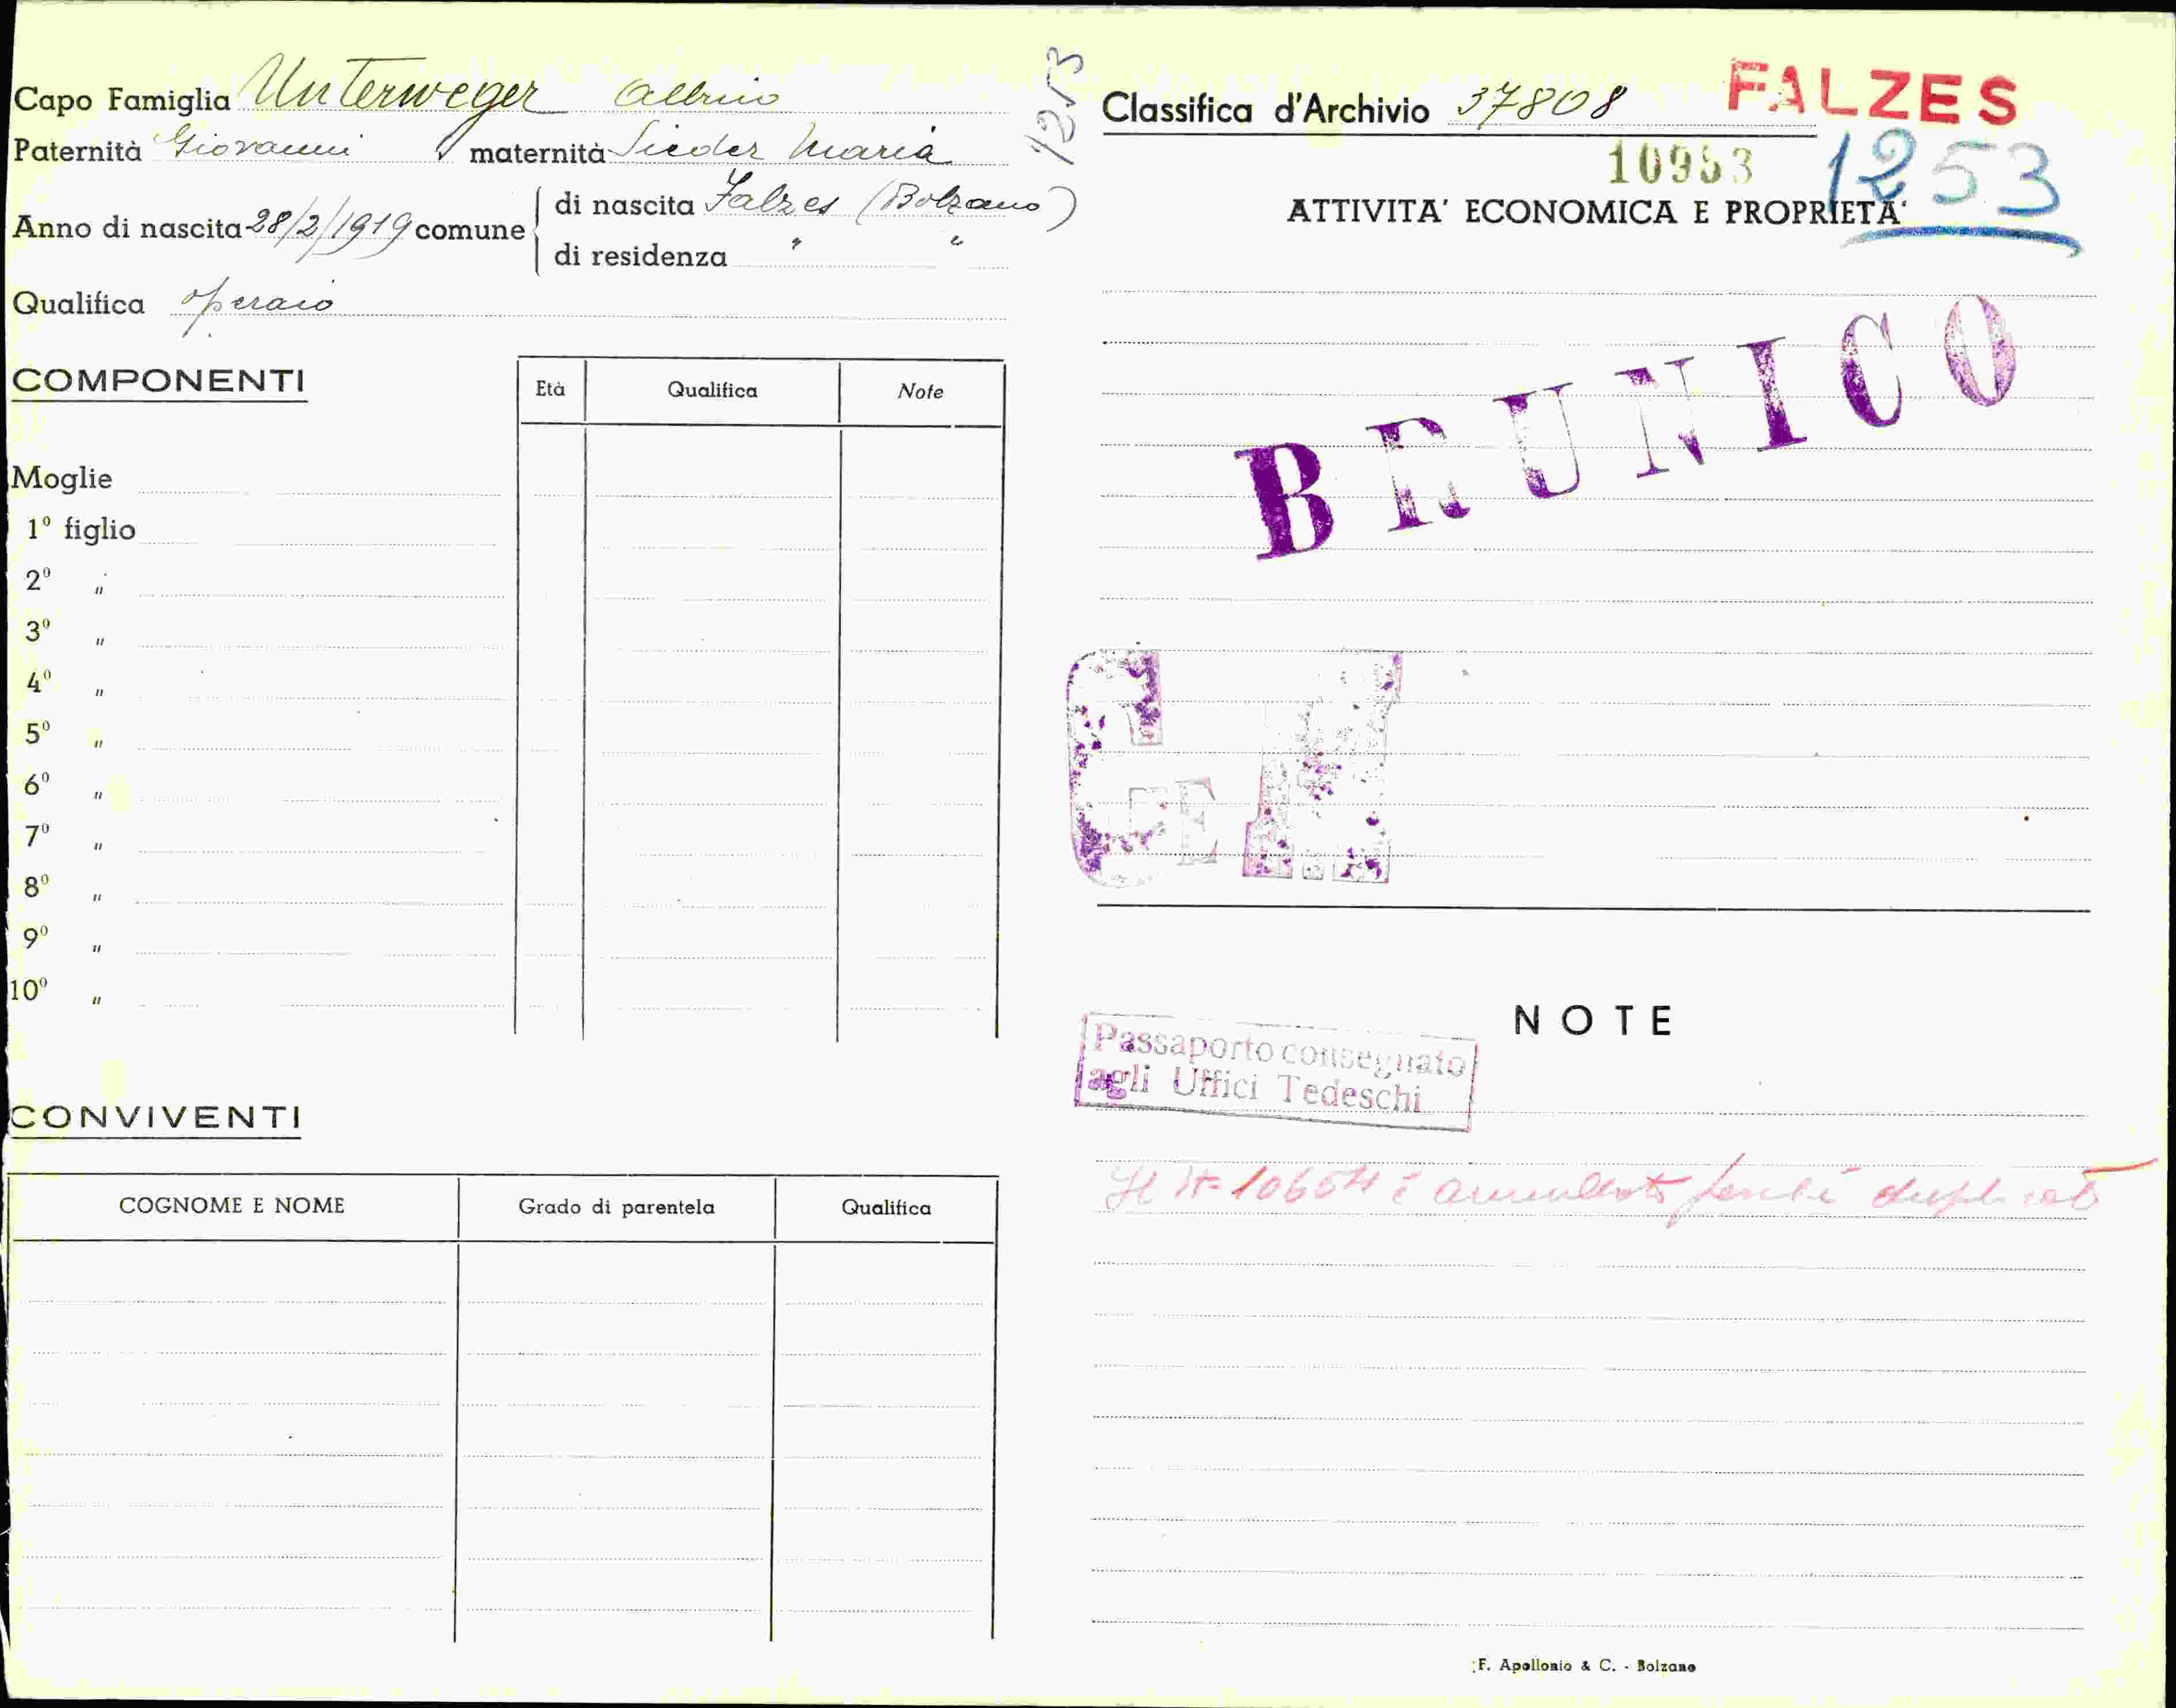 Capo Famiglia Unterweger Albino
Paternità Giovanni maternità Sieder Maria
Anno di nascita 28/2/1919 comune
di nascita Falzes (Bolzano)
di residenza " "
Qualifica operaio
COMPONENTI
Età Qualifica Note
Moglie
1º figlio
2º "
3º "
4º "
5º "
6º "
7º "
8º "
9º "
10º "
CONVIVENTI
COGNOME E NOME Grado di parentela Qualifica
1253
Classifica d'Archivio 37808
FALZES
10953
1253
ATTIVITA' ECONOMICA E PROPRIETA'
BRUNICO
NOTE
Passaporto consegnato
agli Uffici Tedeschi
Il Nº 10654 è annullato perchè duplicato
F. Apollonio & C. - Bolzano